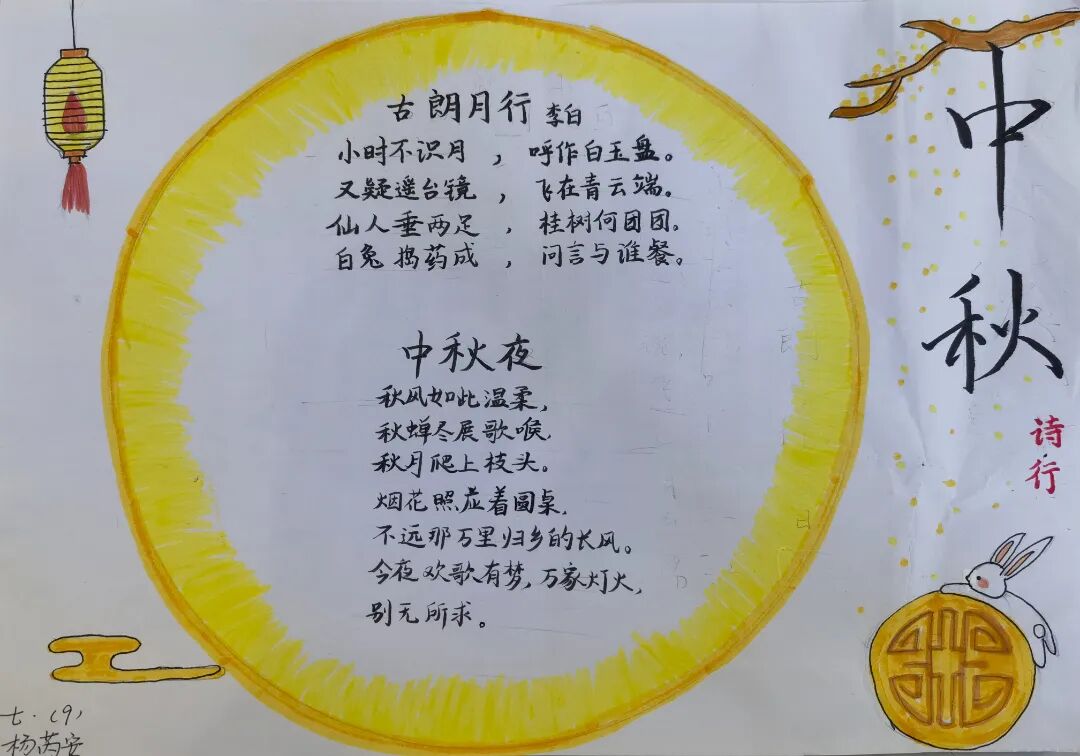 古朗月行 李白
小时不识月，呼作白玉盘。
又疑遥台镜，飞在青云端。
仙人垂两足，桂树何团团。
白兔捣药成，问言与谁餐。
中秋夜
秋风如此温柔，
秋蝉尽展歌喉，
秋月爬上枝头。
烟花照应着圆桌，
不远那万里归乡的长风。
今夜欢歌有梦，万家灯火，
别无所求。
中秋
诗行
七.（9）
杨芮安